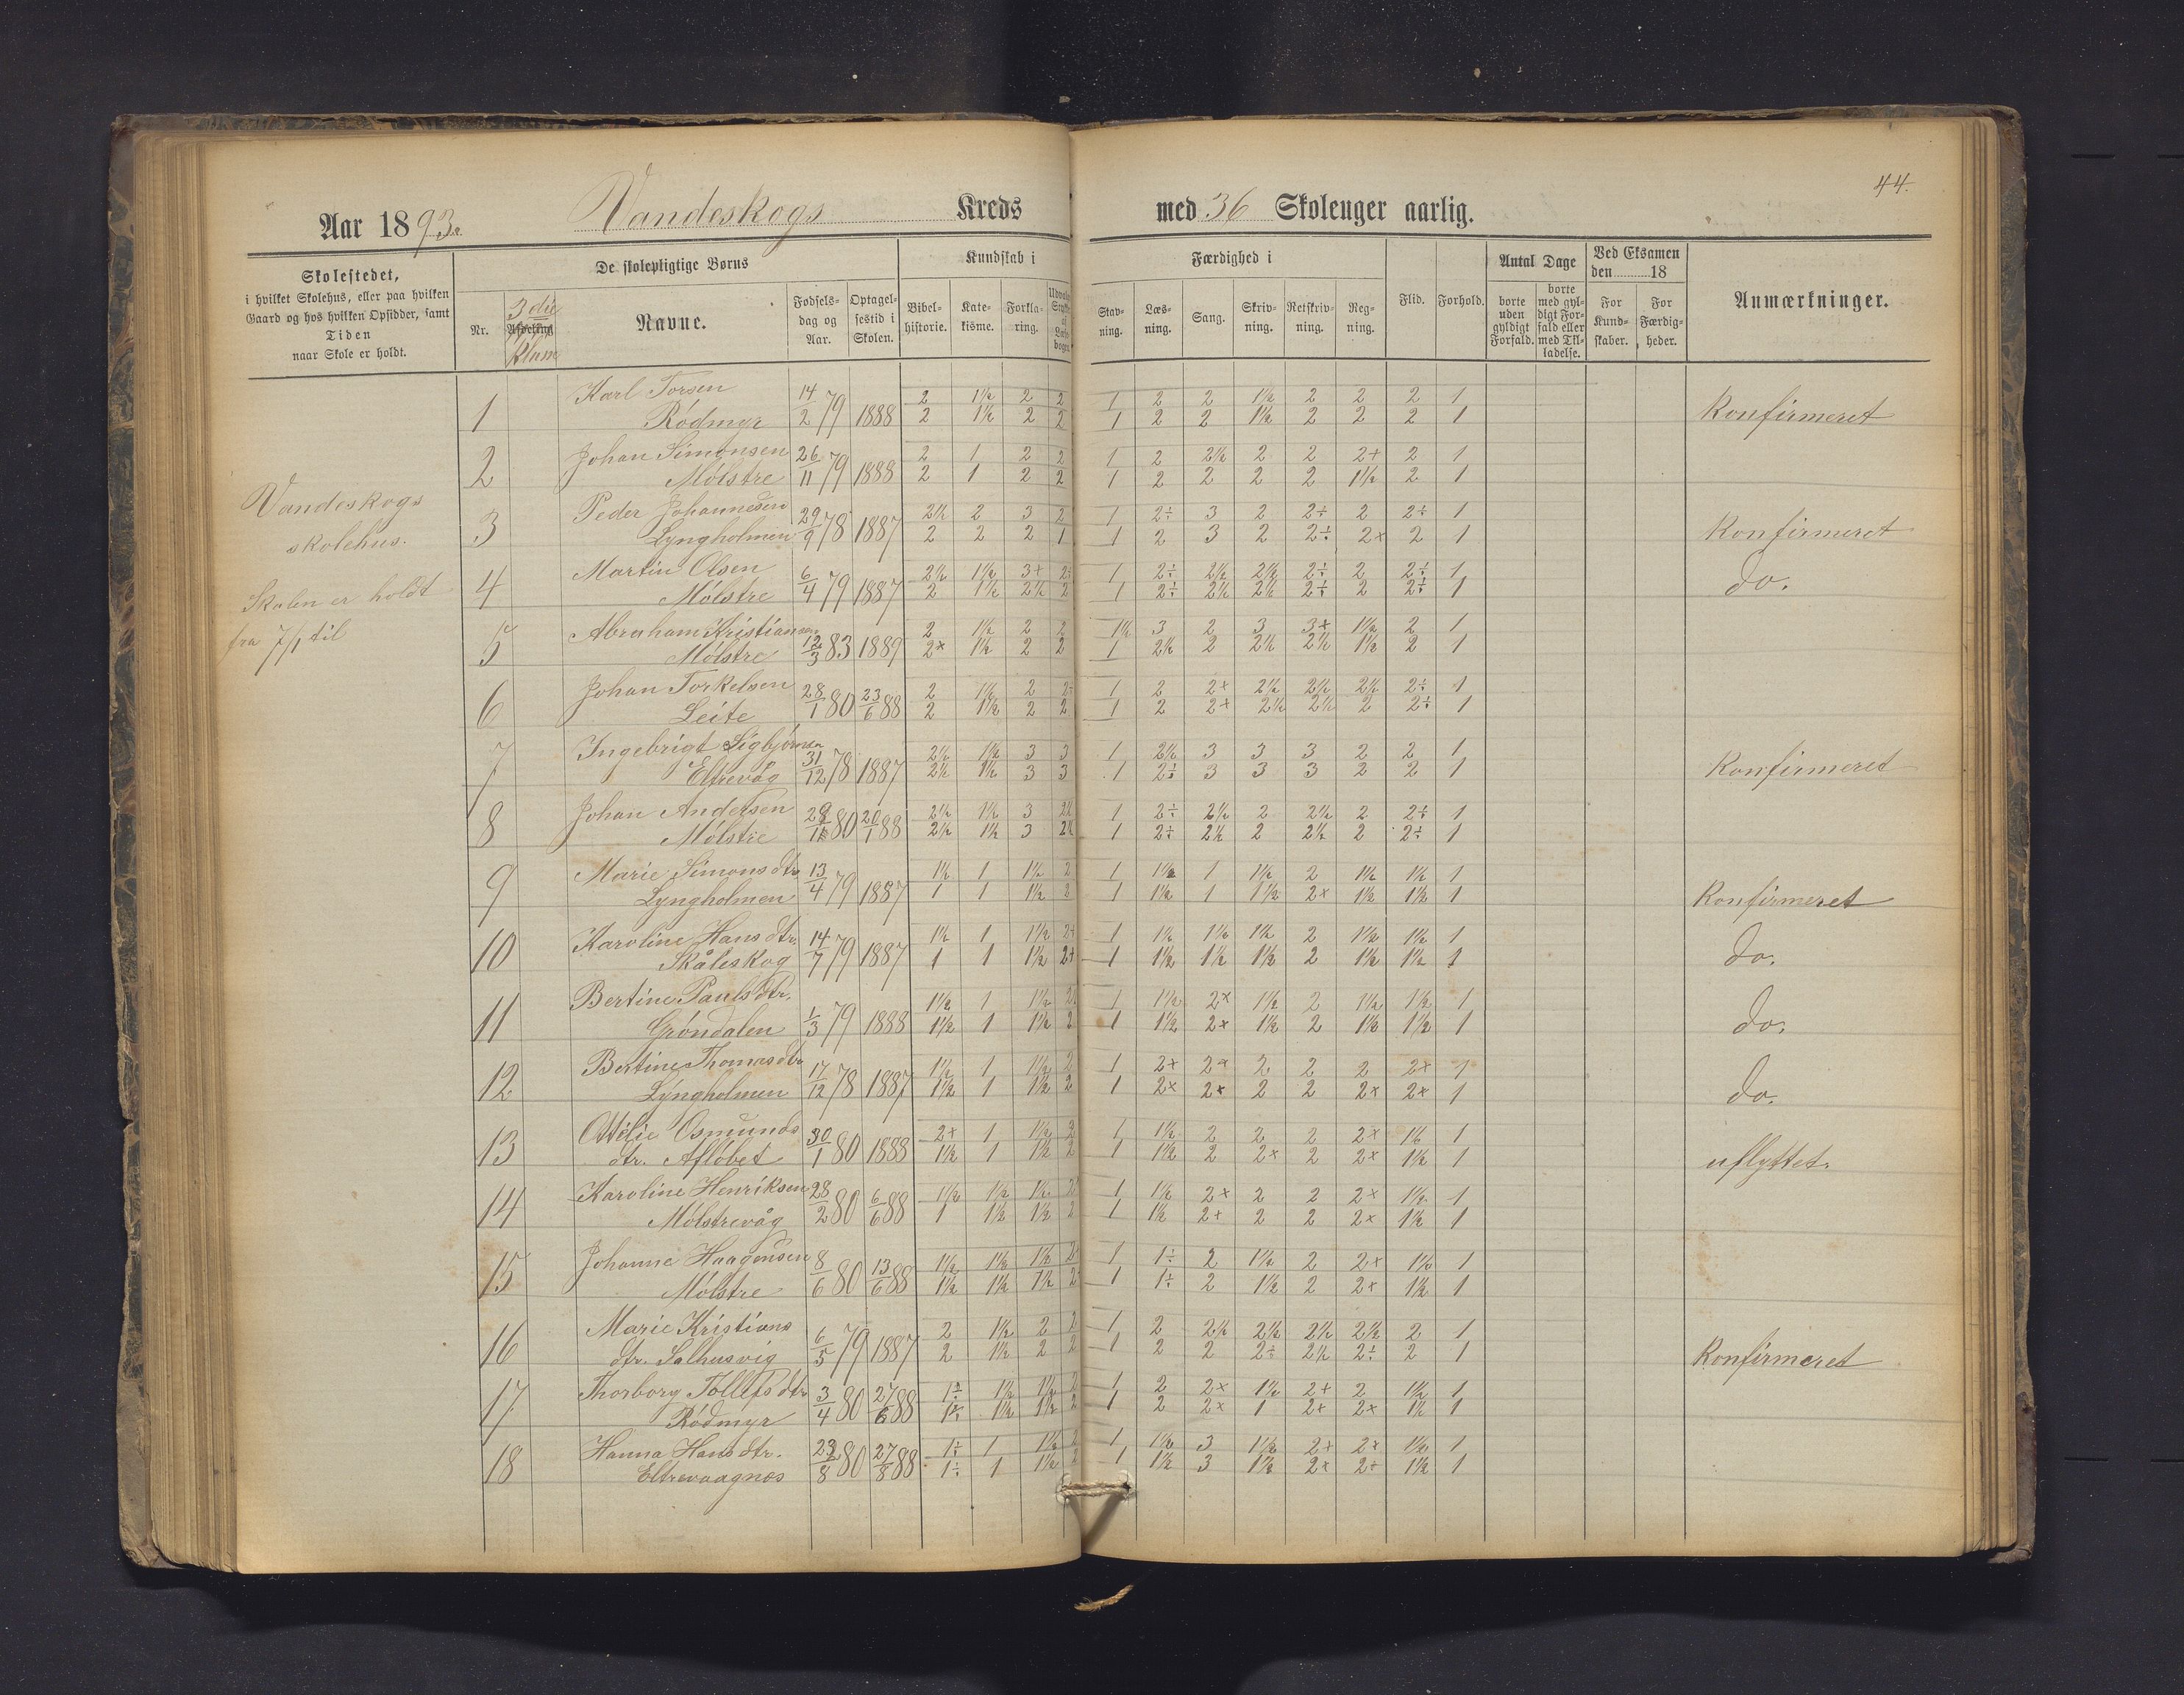 44.
Aar 1893. Vandeskogs Kreds med 36 Skoleuger aarlig.
Skolestedet,
i hvilket Skolehus, eller paa hvilken
Gaard og hos hvilken Opsidder, samt
Tiden
naar Skole er holdt.
De skolepligtige Børns
Nr.
3die
Afdeling
Klasse
Navne.
Fødsels-
dag og
Aar.
Optagel-
sestid i
Skolen.
Kundskab i
Bibel-
historie.
Kate-
kisme.
Forkla-
ring.
Færdighed i
Stav-
ning.
Læs-
ning.
Sang.
Skriv-
ning.
Retskriv-
ning.
Reg-
ning.
Flid.
Forhold.
Antal Dage
borte
uden
gyldigt
Forfald.
borte
med gyl-
digt For-
fald eller
med Til-
ladelse.
Ved Eksamen
den 18
For
Kund-
skaber.
For
Færdig-
heder.
Anmærkninger.
Vandeskogs
skolehus.
Skolen er holdt
fra 7/1 til
1 Karl Torsen 14/2 79 1888 2 1½ 2 2 1 2 2 1½ 2 2 2 1
Rödmyr 2 1½ 2 2 1 2 2 1½ 2 2 2 1 Konfirmeret
2 Johan Simonsen 26/11 79 1888 2 1 2 2 1 2 2½ 2 2 2+ 2 1
Mölstre 2 1 2 2 1 2 2 2 2 1½ 2 1
3 Peder Johannesen 29/9 78 1887 2½ 2 3 2 1 2÷ 3 2 2÷ 2 2÷ 1
Lyngholmen 2 2 2 1 1 2 3 2 2÷ 2× 2 1 Konfirmeret
4 Martin Olsen 6/4 79 1887 2½ 1½ 3+ 2÷ 1 2÷ 2½ 2½ 2÷ 2 2÷ 1
Mölstre 2 1½ 2½ 2 1 2÷ 2½ 2½ 2÷ 2 2÷ 1 do.
5 Abraham Kristiansen 12/3 83 1889 2 1½ 2 2 1½ 3 2 3 3+ 1½ 2 1
Mölstre 2× 1½ 2 2 1 2½ 2 2½ 2½ 1½ 2 1
6 Johan Torkelsen 28/1 80 23/6 88 2 1½ 2 2÷ 1 2 2+ 2½ 2½ 2½ 2÷ 1
Leite 2 1½ 2 2 1 2 2+ 2½ 2½ 2 2÷ 1
7 Ingebrigt Sigbjörnsen 31/12 78 1887 2½ 1½ 3 3 1 2½ 3 3 3 2 2 1
Eltrevåg 2½ 1½ 3 3 1 2÷ 3 3 3 2 2 1 Konfirmeret
8 Johan Andersen 80 20/1 88 2½ 1½ 3 2½ 1 2÷ 2½ 2 2½ 2 2÷ 1
Mölstre 2½ 1½ 3 2½ 1 2÷ 2½ 2 2½ 2 2÷ 1
9 Marie Simonsdtr 13/4 79 1887 1½ 1 1½ 2 1 1½ 1 1½ 2 1½ 1½ 1
Lyngholmen 1 1 1½ 2 1 1½ 1 1½ 2× 1½ 1½ 1 Konfirmeret
10 Karoline Hansdtr. 14/7 79 1887 1½ 1 1½ 2+ 1 1½ 1½ 1½ 2 1½ 1½ 1
Skåleskog 1 1 1½ 2+ 1 1½ 1½ 1½ 2 1½ 1½ 1 do.
11 Bertine Paulsdtr. 1/3 79 1888 1½ 1 1½ 2 1 1½ 2× 1½ 2 1½ 1½ 1
Gröndalen 1½ 1 1½ 2 1 1½ 2× 1½ 2 1½ 1½ 1 do.
12 Bertine Thomasdtr 17/12 78 1887 1½ 1 1½ 2 1 2+ 2+ 2 2 2 2× 1
Lyngholmen 1½ 1 1½ 2 1 2× 2× 2 2 2× 2× 1 do.
13 Ottelie Osmunds 30/1 80 1888 2+ 1 1½ 2 1 1½ 2 2 2 2× 1½ 1
dtr. Aflöbet 1½ 1 1½ 2 1 1½ 2 2× 2 2× 1½ 1 uflyttet.
14 Karoline Henriksen 28/2 80 6/6 88 1½ 1½ 1½ 2 1 1½ 2× 2 2 2× 1½ 1
Mölstrevåg 1 1½ 1½ 2 1 1½ 2+ 2 2 2× 1½ 1
15 Johanne Haagensen 8/6 80 13/6 88 1½ 1½ 1½ 2 1 1÷ 2 1½ 2 2+ 1½ 1
Mölstre 1½ 1½ 1½ 2 1 1÷ 2 1½ 2 2+ 1½ 1
16 Marie Kristians 6/5 79 1887 2 1½ 2 2 1 2 2½ 2½ 2½ 2½ 2 1
dtr. Salhusvig 2 1½ 2 2 1 2 2 2÷ 2½ 2÷ 2 1 Konfirmeret
17 Thorborg Tollefsdtr 3/4 80 27/6 88 1÷ 1½ 1½ 2 1 2 2× 1½ 2+ 2 1½ 1
Rödmyr 1÷ 1½ 1½ 2 1 2 2× 1 2+ 2× 1½ 1
18 Hanna Hansdtr. 23/8 80 27/8 88 1÷ 1 1½ 2 1 1½ 3 1½ 2+ 2× 1½ 1
Eltrevaagnæs 1÷ 1 1½ 2 1 1½ 3 1½ 2× 2÷ 1½ 1